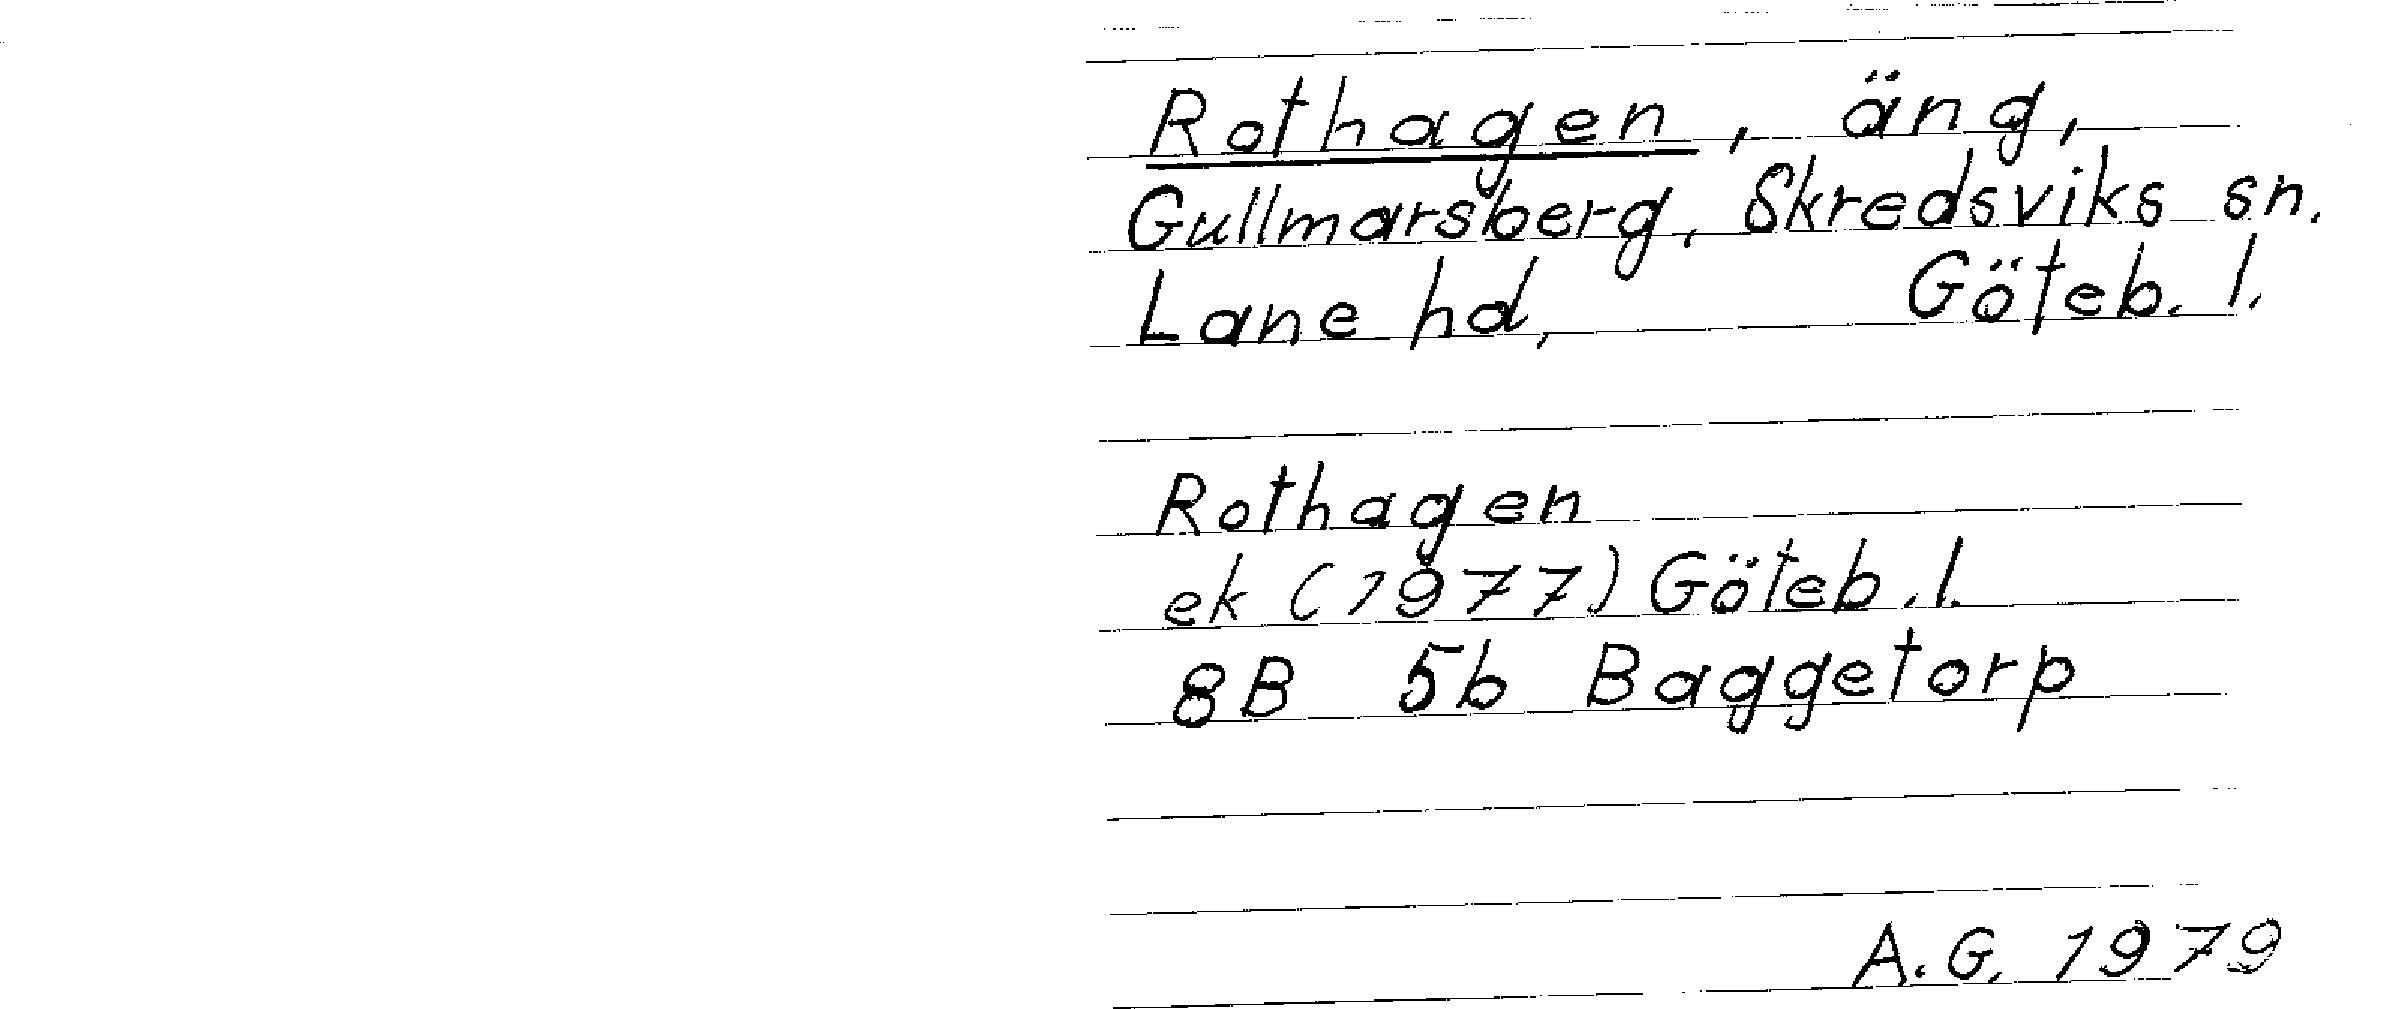 Rothagen, äng,
Gullmarsberg, Skredsviks sn.
Lane hd, Göteb. l.
Rothagen
ek (1977) Göteb. l.
8B 5b Baggetorp
A.G. 1979